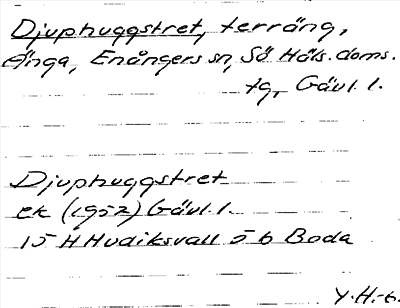 Djuphuggstret, terräng,
Änga, Enångers sn, Sö Häls. doms.
tg, Gävl. l.
Djuphuggstret
ek (1952) Gävl. l.
15 H Hudiksvall 5 b Boda
Y.H.-6.